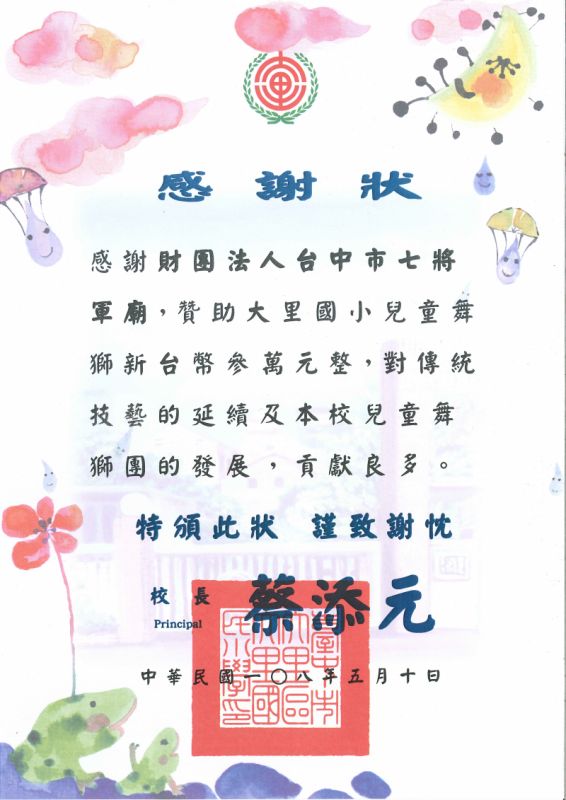 感謝狀
感謝財團法人台中市七將
軍廟，贊助大里國小兒童舞
獅新台幣參萬元整，對傳統
技藝的延續及本校兒童舞
獅團的發展，貢獻良多。
特頒此狀 謹致謝忱
校長 蔡添元
Principal
中華民國一〇八年五月十日